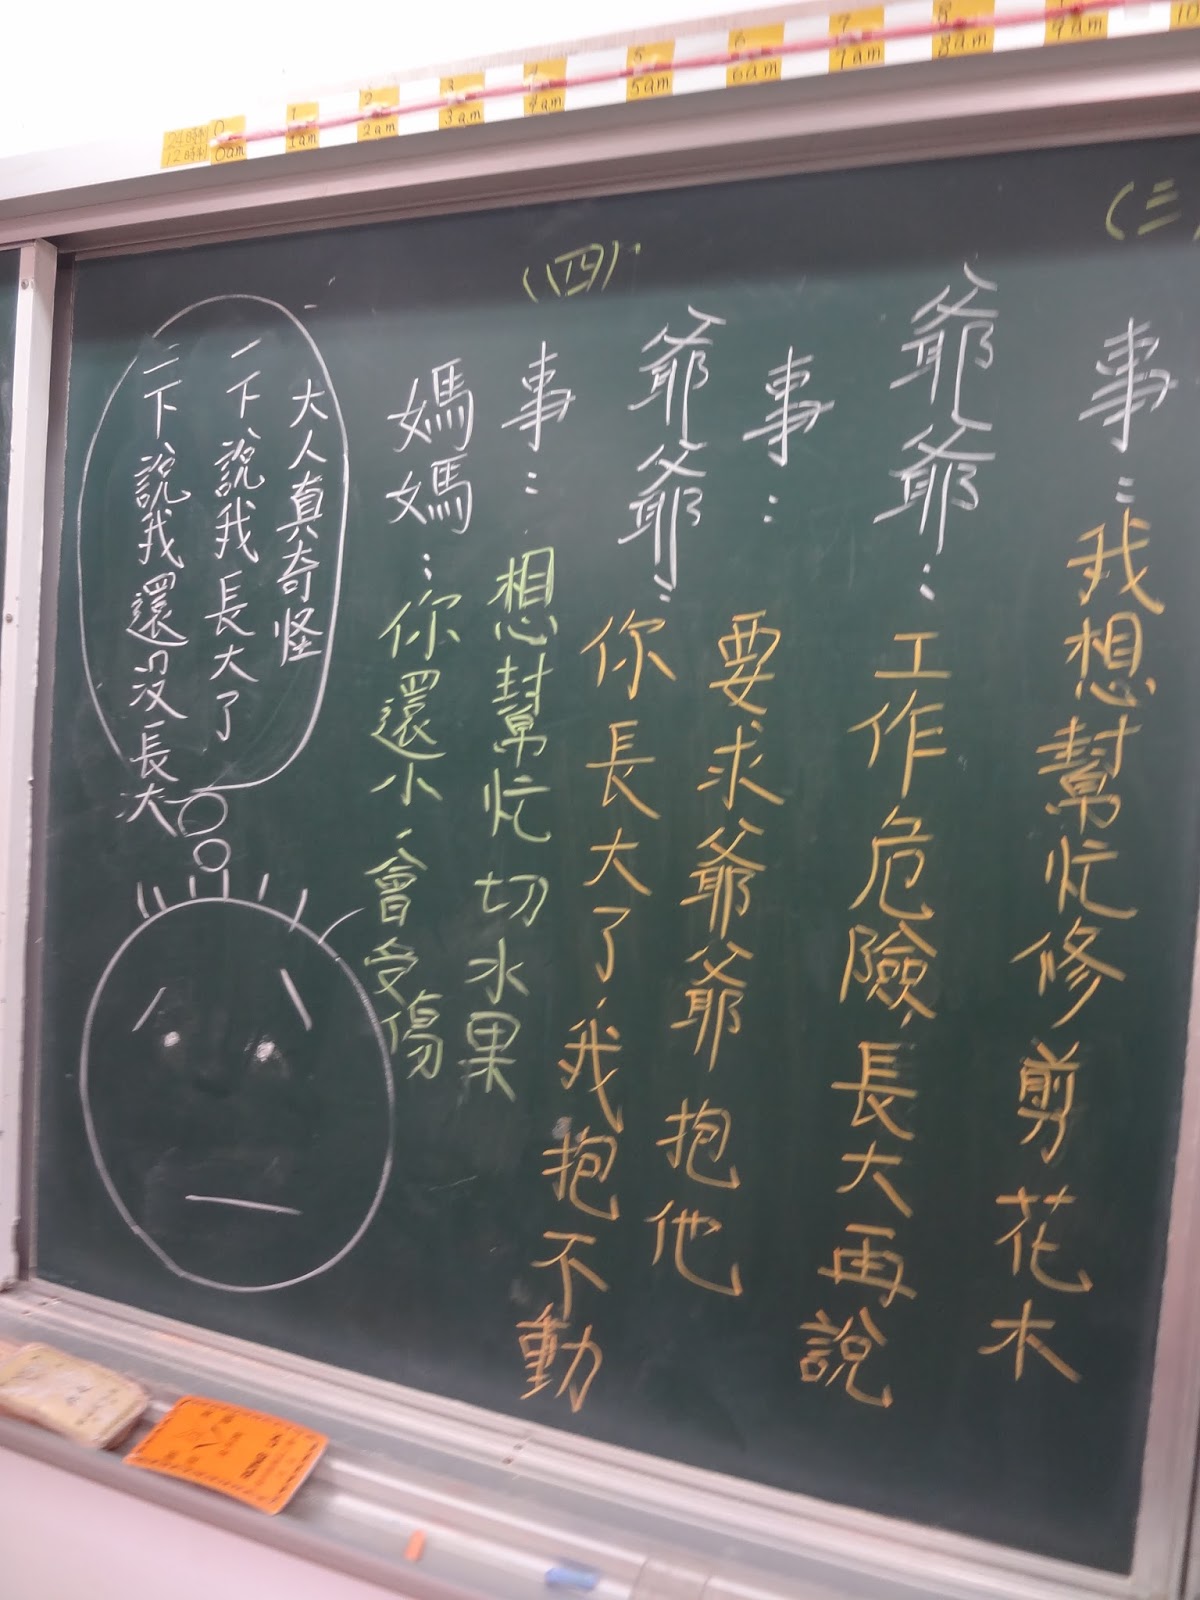 24時制 0 1 2 3 4 5 6 7 8 9 10
12時制 0am 1am 2am 3am 4am 5am 6am 7am 8am 9am
(三)
事：我想幫忙修剪花木
爺爺：工作危險，長大再說
事：要求爺爺抱他
爺爺：你長大了，我抱不動
(四)
事：想幫忙切水果
媽媽：你還小，會受傷
大人真奇怪
一下說我長大了
二下說我還沒長大